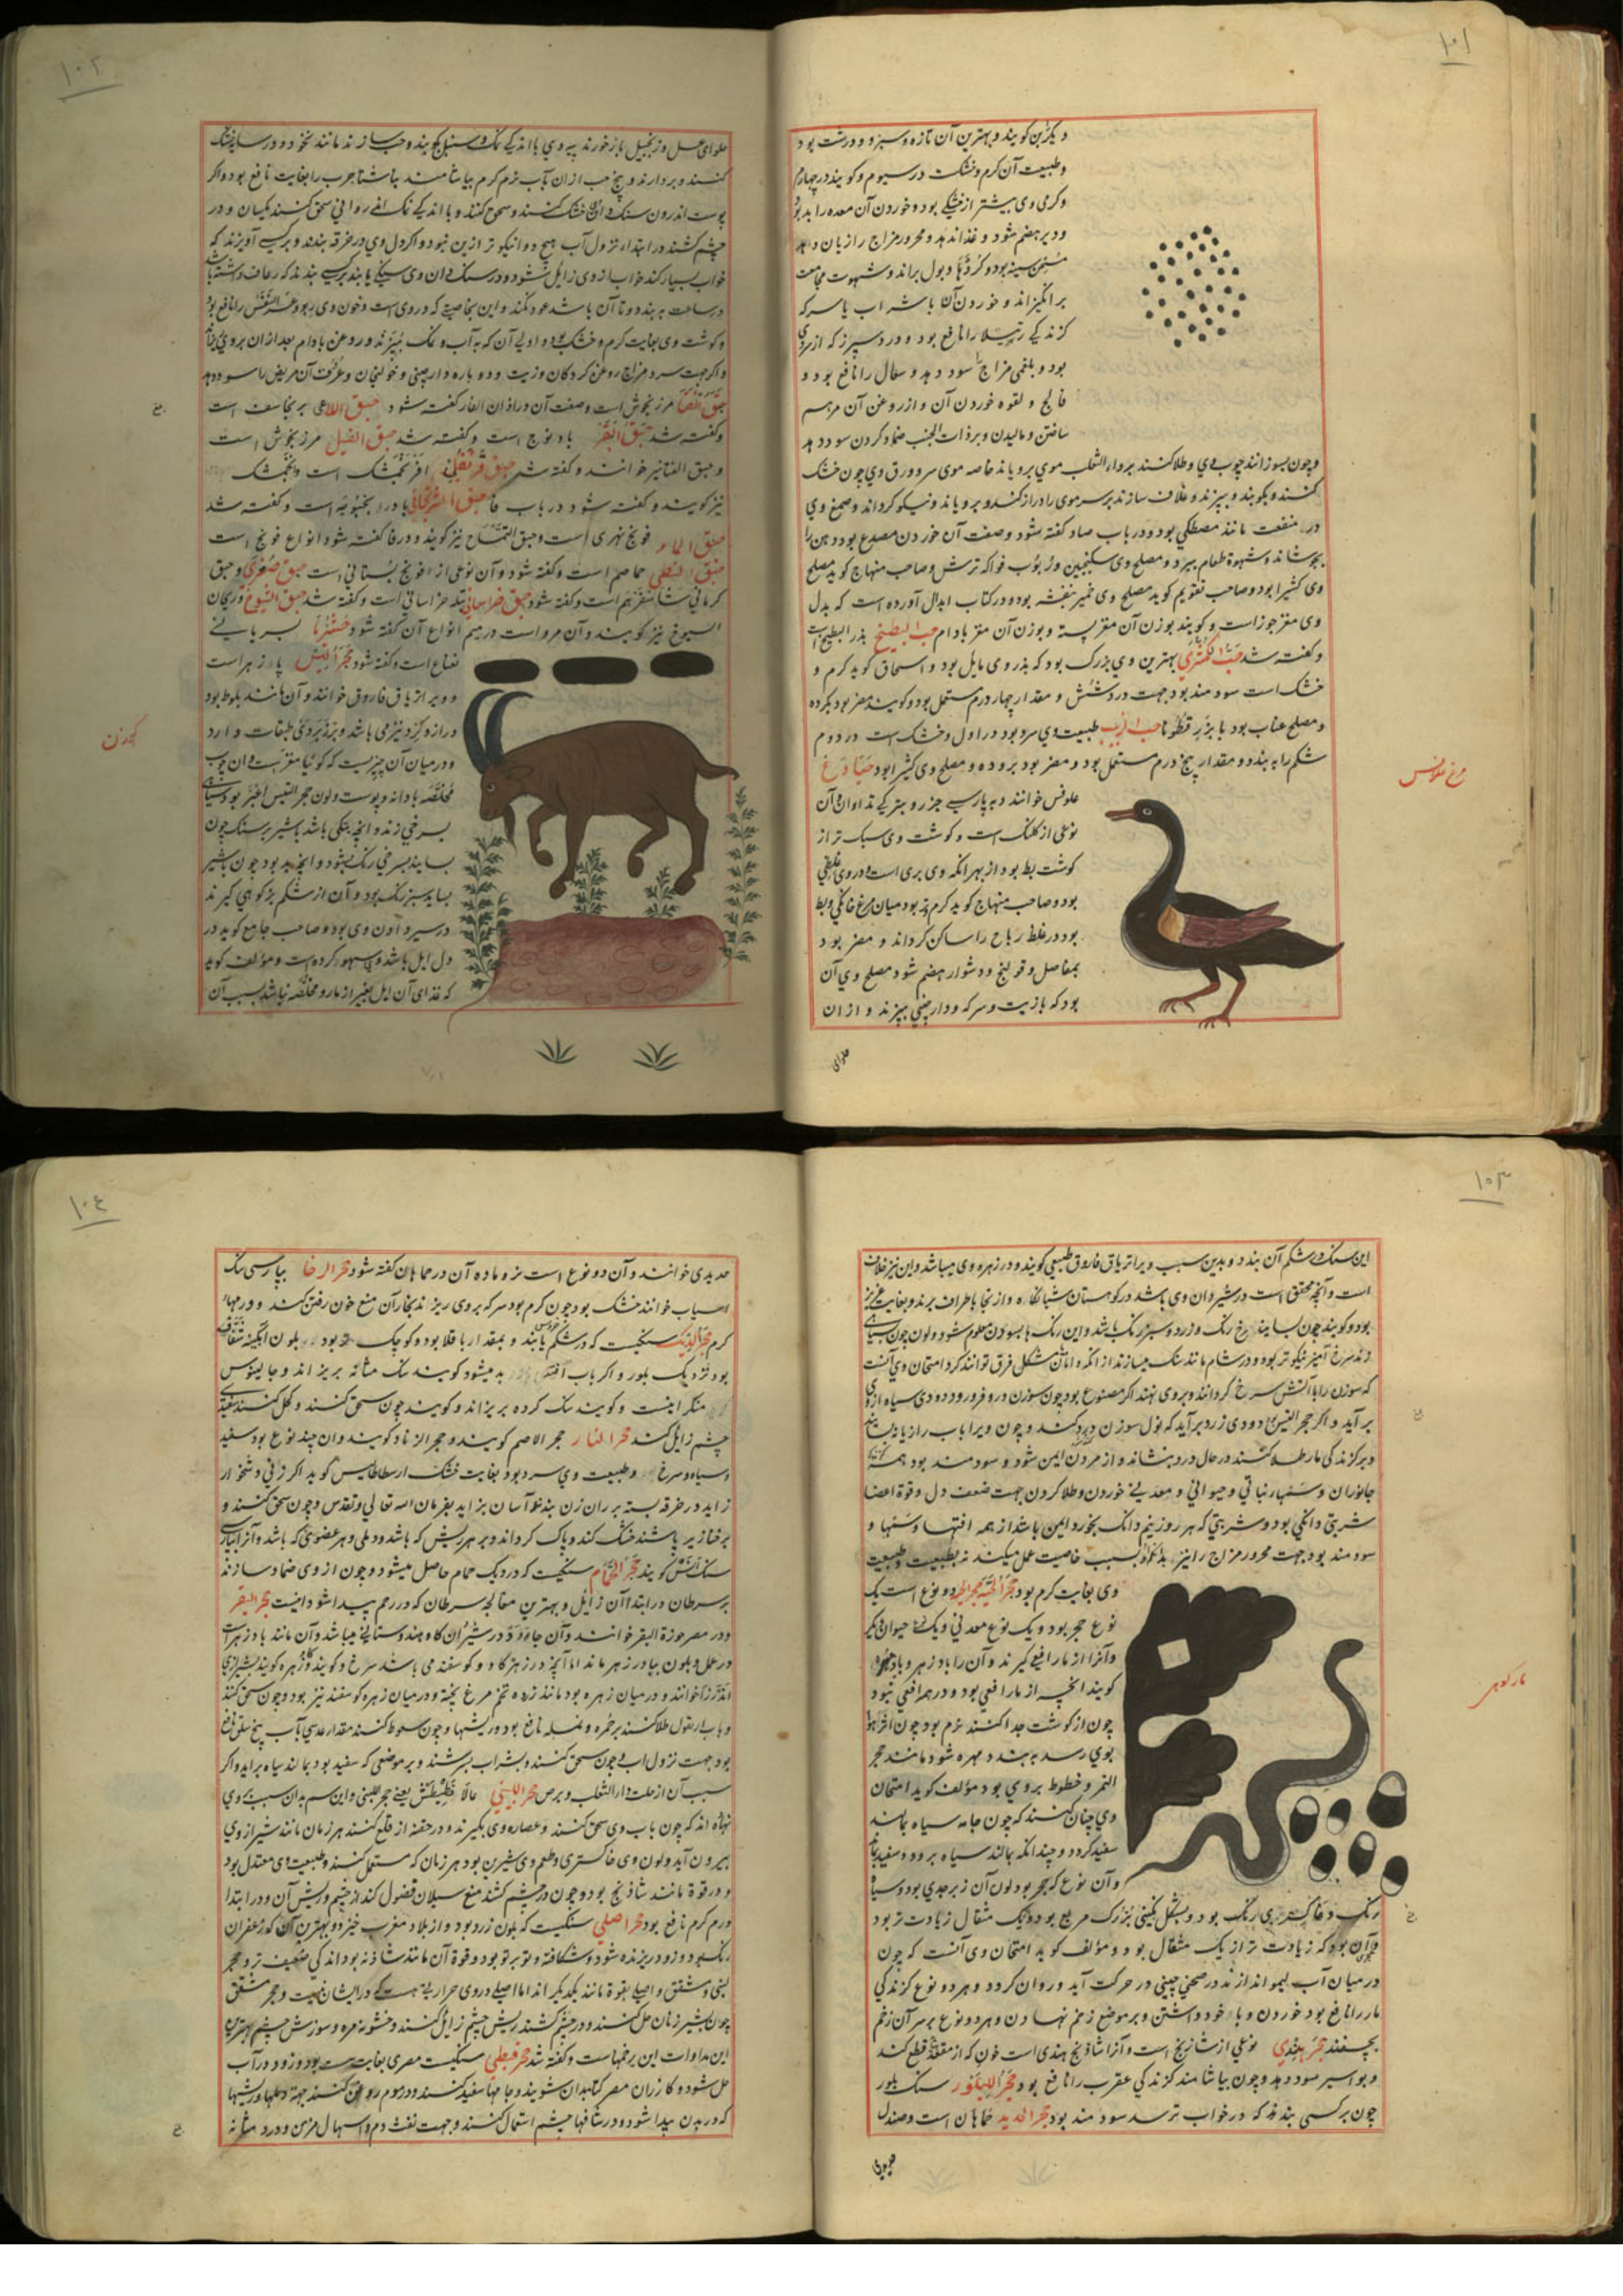 ۱۰۱
دیگر بن گویند و بهترین آن تازه و سبز و درشت بود
و طبیعت آن گرم و خشکست در سیوم و گویند در چهارم
و گرمی وی بیشتر از خشکی بود و خوردن آن معده را بد بود
و دیر هضم شود و غذا اندک دهد و محرور مزاج را زیان دهد
مسخن سینه بود و گرده و بول براند و شهوت مجامعت
برانگیزاند و خوردن آن با شراب یا سرکه
گزندگی رتیلا را نافع بود و درد سپرز که از سردی
بود و بلغمی مزاج را سود دهد و سعال را نافع بود و
فالج و لقوه خوردن آن و از روغن آن مرهم
ساختن و مالیدن و بر ذات الجنب ضماد کردن سود دهد
و چون بسوزانند چوب وی و طلا کنند بر داء الثعلب موی برویاند خاصه موی سر و ورق وی چون خشک
کنند و بکوبند و بپزند و غلاف سازند بر سر موی را دراز کند و برویاند و نیکو گرداند و صمغ وی
در منفعت مانند مصطکی بود و در باب صاد گفته شود و صفت آن خوردن مصدع بود و دهن را
بجوشاند و شهوة طعام ببرد و مصلح وی سکنجبین و ربوب فواکه ترش و صاحب منهاج گوید مصلح
وی کثیرا بود و صاحب تقویم گوید مصلح وی خمیر بنفشه بود و در کتاب ابدال آورده است که بدل
وی مغز جوز است و گویند بوزن آن مغز پسته و بوزن آن مغز بادام حب البطیخ بذر البطیخ است
و گفته شد حب الکمثری بهترین وی بزرگ بود که بذر وی مایل بود و اسحاق گوید گرم و
خشک است سودمند بود جهت درد شش و مقدار چهار درم مستعمل بود و گویند مضر بود بگرده
و مصلح عناب بود یا بزر قطونا حب الزبیب طبیعت وی سرد بود در اول و خشک است در دوم
شکم را ببندد و مقدار پنج درم مستعمل بود و مضر بود بروده و مصلح وی کثیرا بود
مرغ علوفس
علوفس خوانند و به پارسی چرز و بترکی تداوان و آن
نوعی از کلنگ است و گوشت وی سبک تر از
گوشت بط بود از بهر آنکه وی بری است و در وی غلیظی
بود و صاحب منهاج گوید گرم تر بود میان مرغ خانگی و بط
بود در غلظ ریاح را ساکن گرداند و مضر بود
بمفاصل و قولنج و دشوار هضم شود مصلح وی آن
بود که با زیت و سرکه و دارچینی بپزند و از ان
حلوای
۱۰۲
حلوای عسل و زنجبیل باز خورند پیه وی با اندکی نمک و سنبل بکوبند و حب سازند مانند نخود و در سایه خشک
کنند و بردارند و پنج حب از ان بآب نرم گرم بیاشامند ناشتا جرب را بغایت نافع بود و اگر
پوست اندرون سنگدان خشک کنند و سحق کنند و با اندکی نمک اندرانی سحق کنند یکسان و در
چشم کشند در ابتداء نزول آب هیچ دوا نیکوتر از این نبود و اگر دل وی در خرقه بندند و بر کسی آویزند که
خواب بسیار کند خواب از وی زایل شود و در سنگدان وی سنگی یابند بر کسی بندند که رعاف داشته باشد
در ساعت ببندد و تا آن باشد عود نکند و این بخاصیتی که در وی است و خون وی ربو و عسر النفس را نافع بود
و گوشت وی بغایت گرم و خشک بود و اولی آن که به آب و نمک بپزند و روغن بادام بعد از ان بر وی ریزند
و اگر جهت سرد مزاج روغن گردکان و زیت دو باره دارچینی و خولنجان و عرق آن مریض را سود دهد
حبق القنا مرزنجوش است و صفت آن در اذان الفار گفته شود حبق الراعی برنجاسف است
و گفته شد حبق البقر بابونج است و گفته شد حبق الفیل مرزنجوش است
و حبق الفتا نیز خوانند و گفته شد حبق قرنفلی افرنجمشک است و انجمشک
نیز گویند و گفته شود در باب فا حبق الترنجانی بادرنجبویه است و گفته شد
حبق الماء فوتنج نهری است و حبق التمساح نیز گویند و در فا گفته شود انواع فوتنج است
حبق النبطی حماحم است و گفته شود و آن نوعی از فوتنج بستانی است حبق صعتری و حبق
کرمانی شاهسفرهم است و گفته شود حبق خراسانی بقله خراسانی است و گفته شد حبق الشیوخ و ریحان
الشیوخ نیز گویند و آن مرو است در میم انواع آن گفته شود بسریانی
نعناع است و گفته شود حجر التیس پادزهر است
و ویرا تریاق فاروق خوانند و آن مانند بلوط بود
دراز و گرد نیز می باشد و بر زبر وی طبقات دارد
و در میان آن چیزیست که گویا مغز بست و ان چوب
مخلصه با دانه و پوست و لون حجر التیس اغبر بود و سیاهی
بسرخی زند و آنچه بنکی باشد بشیر بر سنگ چون
بسایند بسرخی رنگ شود و آنچه بد بود چون بشیر
بسایند سبز رنگ بود و آن از شکم بز کوهی گیرند
در شیردان وی بود و صاحب جامع گوید در
دل ایل باشد وی سهو کرده است و مؤلف گوید
که غذای آن ایل بغیر از مار و مخلصه نباشد بسبب آن
گوزن
۱۰۳
این سنگ در شکم آن بندد و بدین سبب ویرا تریاق فاروق طبیعی گویند و در زهره وی میباشد و این نیز خلاف
است و آنچه محقق است در شیردان وی باشد در کوهستان شبانکاره و از نجا باطراف برند و بغایت عزیز
بود و گویند چون بسایند سرخ رنگ و زرد و سبز رنگ باشد و این رنگ بسودن معلوم شود و لون چون بسیاهی
زند سرخ آمیز نیکوتر بود و در شام مانند سنگ میسازند از آنکه و امتحان مشکل فرق توانند کرد امتحان وی آنست
که سوزن را بآتش سرخ گردانند و بر وی نهند اگر مصنوع بود چون سوزن درو فرو رود دودی سیاه از وی
بر آید و اگر حجر التیس بود دودی زرد بر آید که نوک سوزن درد کند و چون ویرا بآب رازیانه بسایند
و بر گزندگی مار طلا کنند در حال درد بنشاند و از مردن ایمن شود و سودمند بود همه
جانوران و سمهاء نباتی و حیوانی و معدنی خوردن و طلا کردن جهت ضعف دل و قوة اعضا
شربتی دانگی بود و شربتی که هر روز نیم دانگ بخورد ایمن باشد از همه آفتها و سمها و
سودمند بود جهت محرور مزاج را نیز بدانکه بسبب خاصیت عمل میکند نه بطبیعت و طبیعت
وی بغایت گرم بود حجر الحیة دو نوع است یک
نوع حجر بود و یک نوع معدنی و یک نوع حیوان دیگر
و آنرا از مار افعی گیرند و آن را پادزهر و
گویند آنچه از مار افعی بود و در همه افعی نبود
چون از گوشت جدا کنند نرم بود چون هوا
بوی رسد ببندد مهره شود مانند حجر
النمر و خطوط بر وی بود مؤلف گوید امتحان
وی چنان کنند که چون جامه سیاه بمالند
سفید گردد و چندانکه بمالند سیاه برود و سفید بماند
و آن نوع که حجر بود لون آن زبرجدی بود و سیاه
رنگ و خاکستری رنگ بود و بشکل نگینی بزرگ مربع بود و یک مثقال زیادت تر بود
و آن بود که زیادت تر از یک مثقال بود و مؤلف گوید امتحان وی آنست که چون
در میان آب لیمو اندازند در صحنی چینی در حرکت آید و روان گردد و هر دو نوع گزندگی
مار را نافع بود خوردن و با خود داشتن و بر موضع زخم نهادن و هر دو نوع بر سر آن زخم
بچسفند حجر هندی نوعی از شادنج است و آنرا شاذنج هندی است خون که از مقعده قطع کند
و بواسیر سود دهد و چون بیاشامند گزندگی عقرب را نافع بود حجر البلور سنگ بلور
چون بر کسی بندند که در خواب ترسد سودمند بود حجر الحدید خماهان است و صندل
مار کوهی
حدیدی
۱۰٤
حدیدی خوانند و آن دو نوع است نر و ماده آن در خماهان گفته شود حجر الرحا بپارسی سنگ
آسیاب خوانند خشک بود چون گرم بود سرکه بر وی ریزند بخار آن منع خون رفتن کند و ورمهاء
گرم حجر الدیک سنگیست که در شکم خروس یابند و بمقدار باقلا بود و کوچک تر بود بلون آبگینه شفاف
بود نزدیک بلور و اگر بآب بدمیشود گویند سنگ مثانه بریزاند و جالینوس
منکر اینست و گویند سنگ گرده بریزاند و گویند چون سحق کنند و کحل کنند سفیدی
چشم زایل کند حجر النار حجر الاصم گویند و حجر الزناد گویند و ان چند نوع بود سفید
و سیاه و سرخ و طبیعت وی سرد بود بغایت خشک ارسطاطالیس گوید اگر زنی دشخوار
زاید در خرقه بسته بر ران زن بندند آسان بزاید بفرمان الله تعالی و تقدس و چون سحق کنند و
بر خنازیر پاشند خشک کند و پاک گرداند و بر هر ریش که باشد و دملی و هر عضوی که باشد و آنرا بپارسی
سنگ آتش گویند حجر الحمام سنگیست که در دیگ حمام حاصل میشود و چون از وی ضماد سازند
بر سرطان در ابتدا آن زایل و بهترین معالجه سرطان که در رحم پیدا شود اینست حجر البقر
و در مصر حرزة البقر خوانند و آن جاودرو در شیردان گاو هندوستانی میباشد و آن مانند پادزهر است
در عمل و بلون بپادزهر ماند اما آنچه در زهره گاو و گوسفند می باشد سرخ و گویند گاو زهره گویند بشیرازی
اندرزا خوانند و در میان زهره بود مانند زرده تخم مرغ پخته و در میان زهره گوسفند نیز بود و چون سحق کنند
و با بقول طلا کنند بر حمره و نمله نافع بود و ریشها و چون سعوط کنند مقدار عدسی بآب بیخ سلق نافع
بود جهت نزول آب و چون سحق کنند و بشراب بسرشند و بر موضعی که سفید بود بمالند سیاه برآید و اگر
سبب آن از علت داء الثعلب و برص حجر اللبنی یعنی حجر اللبنی و این اسم بدان سبب بر وی
نهاده اند که چون بآب وی سحق کنند و عصاره وی بگیرند و در حقه از قلع کنند هر زمان مانند شیر از وی
بیرون آید و لون وی خاکستری و طعم وی شیرین بود هر زمان که مستعمل کنند و طبیعت وی معتدل بود
و در قوة مانند شاذنج بود و چون در چشم کشند منع سیلان فضول کند از چشم و ریش آن و در ابتدا
ورم گرم نافع بود حجر اصلی سنگیست که بلون زرد بود و از بلاد مغرب خیزد و بهترین آن که زعفران
رنگ بود و زود ریزنده شود و شکافته و تو بر تو بود و قوة آن مانند شاذنه بود اندکی ضعیف تر و حجر
لبنی و مشقق و اصلی بقوة مانند یکدیگراند اما اصلی در وی حرارتی هست که در ایشان نیست و حجر مشقق
چون بشیر زنان حل کنند و در چشم کشند ریش چشم زایل کنند و خشونة مژه و سوزش چشم بهترین
این مداوات این زخمهاست و گفته شد حجر قبطی سنگیست مصری بغایت سست بود و زود در آب
حل شود و گازران مصر کتان بدان شویند و جامها سفید کنند و در موم روغن کنند جهة دملها و ریشها
که در بدن پیدا شود و در شافهاء چشم استعمال کنند و جهت نفث دم و اسهال مزمن و درد مثانه